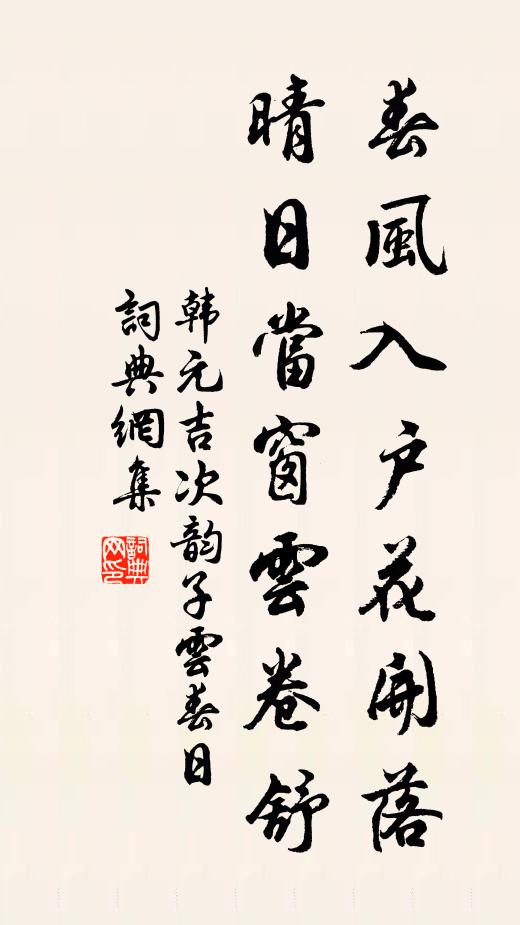 春風入户花開落
晴日當窗雲卷舒
韩元吉次韵子雲春日
詞典網集
詞典
网印